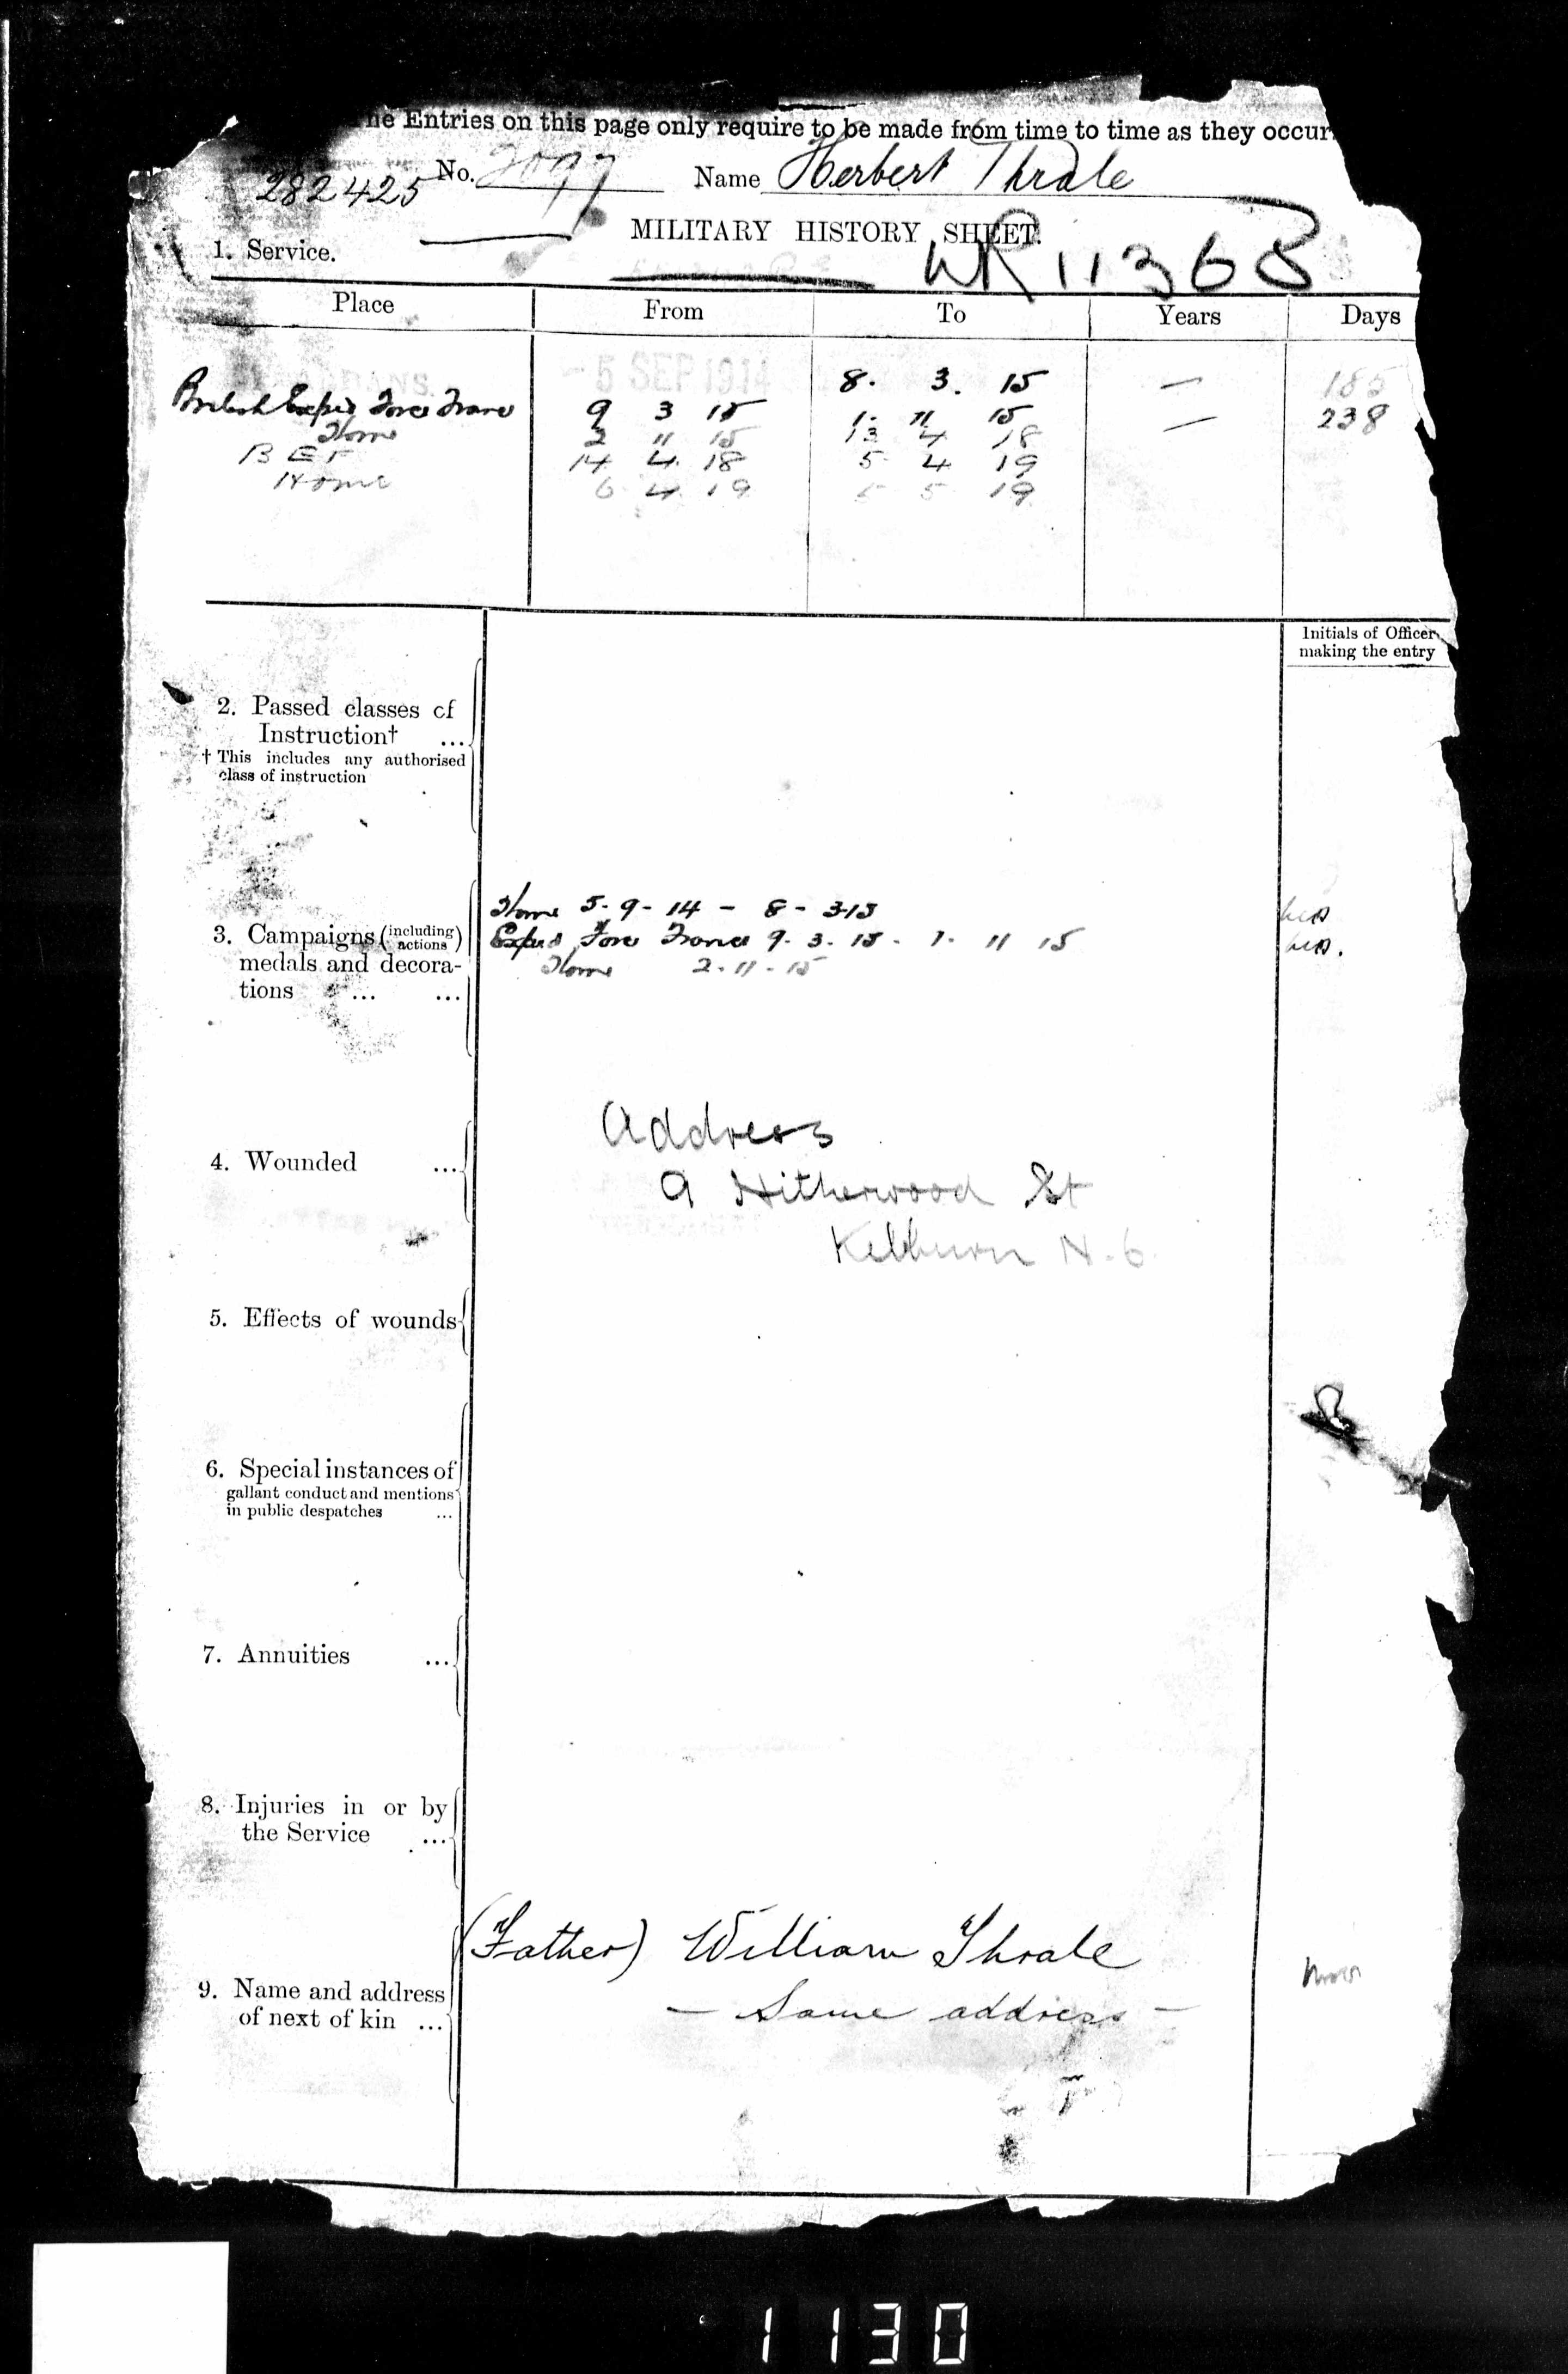 he Entries on this page only require to be made from time to time as they occur.
282425 No. 2097 Name Herbert Thrale
MILITARY HISTORY SHEET.
1. Service. WR 11368
Place From To Years Days
- 5 SEP 1914 8. 3. 15 — 185
British Exped Force France 9 3 15 1. 11 15 — 238
Home 2 11 15 13 4 18
B E F 14 4 18 5 4 19
Home 6 4 19 5 19
Initials of Officer
making the entry
2. Passed classes of
Instruction† ...
† This includes any authorised
class of instruction
Home 5-9-14 - 8-3-15
3. Campaigns (including actions) Exped Force France 9. 3. 15 - 1. 11 15
medals and decora- Home 2-11-15
tions ... ...
Address
4. Wounded ...
9 Hitherwood St
Kilburn N. 6
5. Effects of wounds
6. Special instances of
gallant conduct and mentions
in public despatches ...
7. Annuities ...
8. Injuries in or by
the Service ...
(Father) William Thrale
9. Name and address
of next of kin ... — Same address —
1130